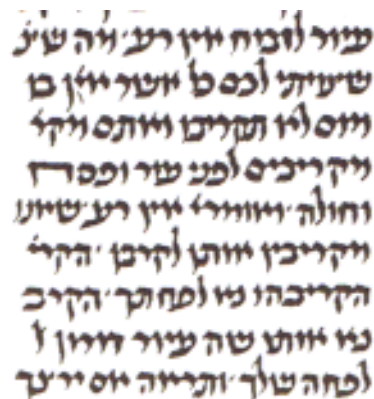 עיור לזבוח אין רע· וזה
לכם כל אשר בו
מום לא תקריבו ואתם מקר׳
מקריבים לפני עור ופסח
וחולה· ואומרי׳ אין רע שאנו
מקריבין אותו לקרבן· הקרי׳
הקריבהו נא לפחתך· הקריב
נא אותו שה עיור דורון ל
לפחה שלך· ותראה אם ירצך